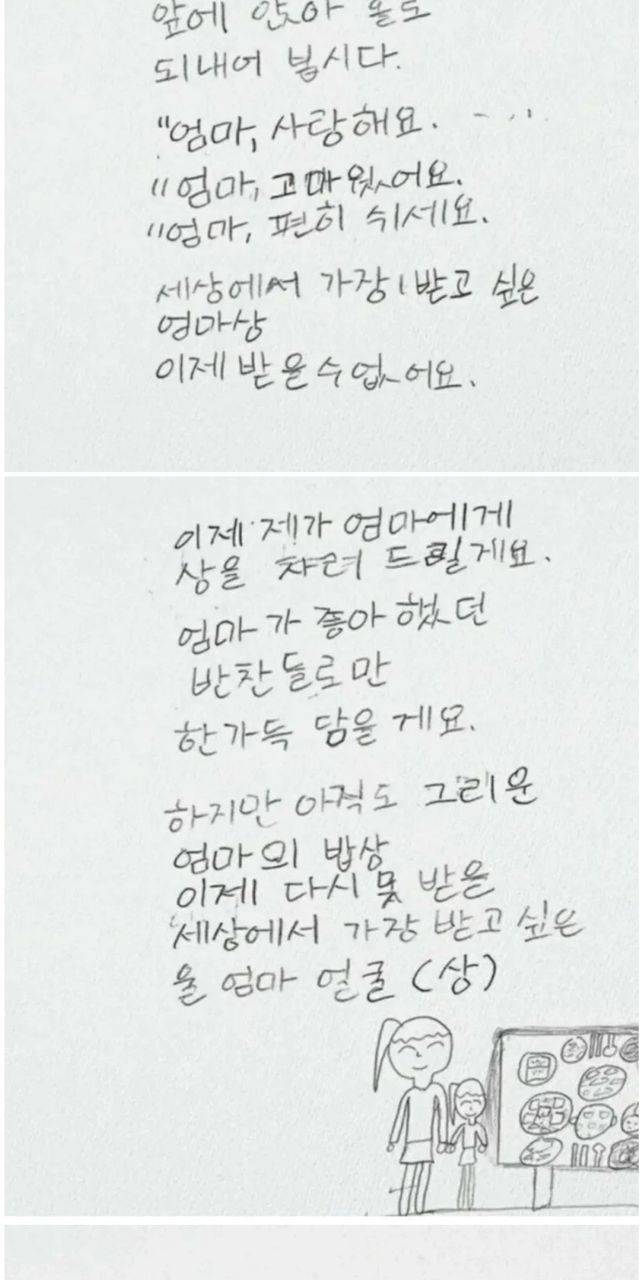 앞에 앉아 불도
되내어 봅시다.
"엄마, 사랑해요. - ...
"엄마, 고마웠어요.
"엄마, 편히 쉬세요.
세상에서 가장 받고 싶은
엄마상
이제 받을수없어요.
이제 제가 엄마에게
상을 차려 드릴게요.
엄마가 좋아했던
반찬들로만
한가득 담을게요.
하지만 아직도 그리운
엄마의 밥상
이제 다시 못 받을
세상에서 가장 받고 싶은
울 엄마 얼굴 (상)